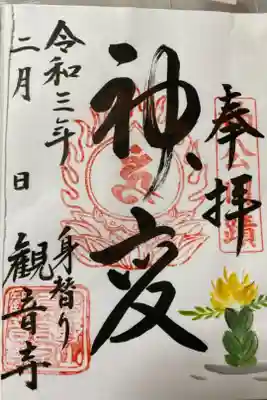 奉拝
神変
身替り
觀音寺
令和三年
二月 日